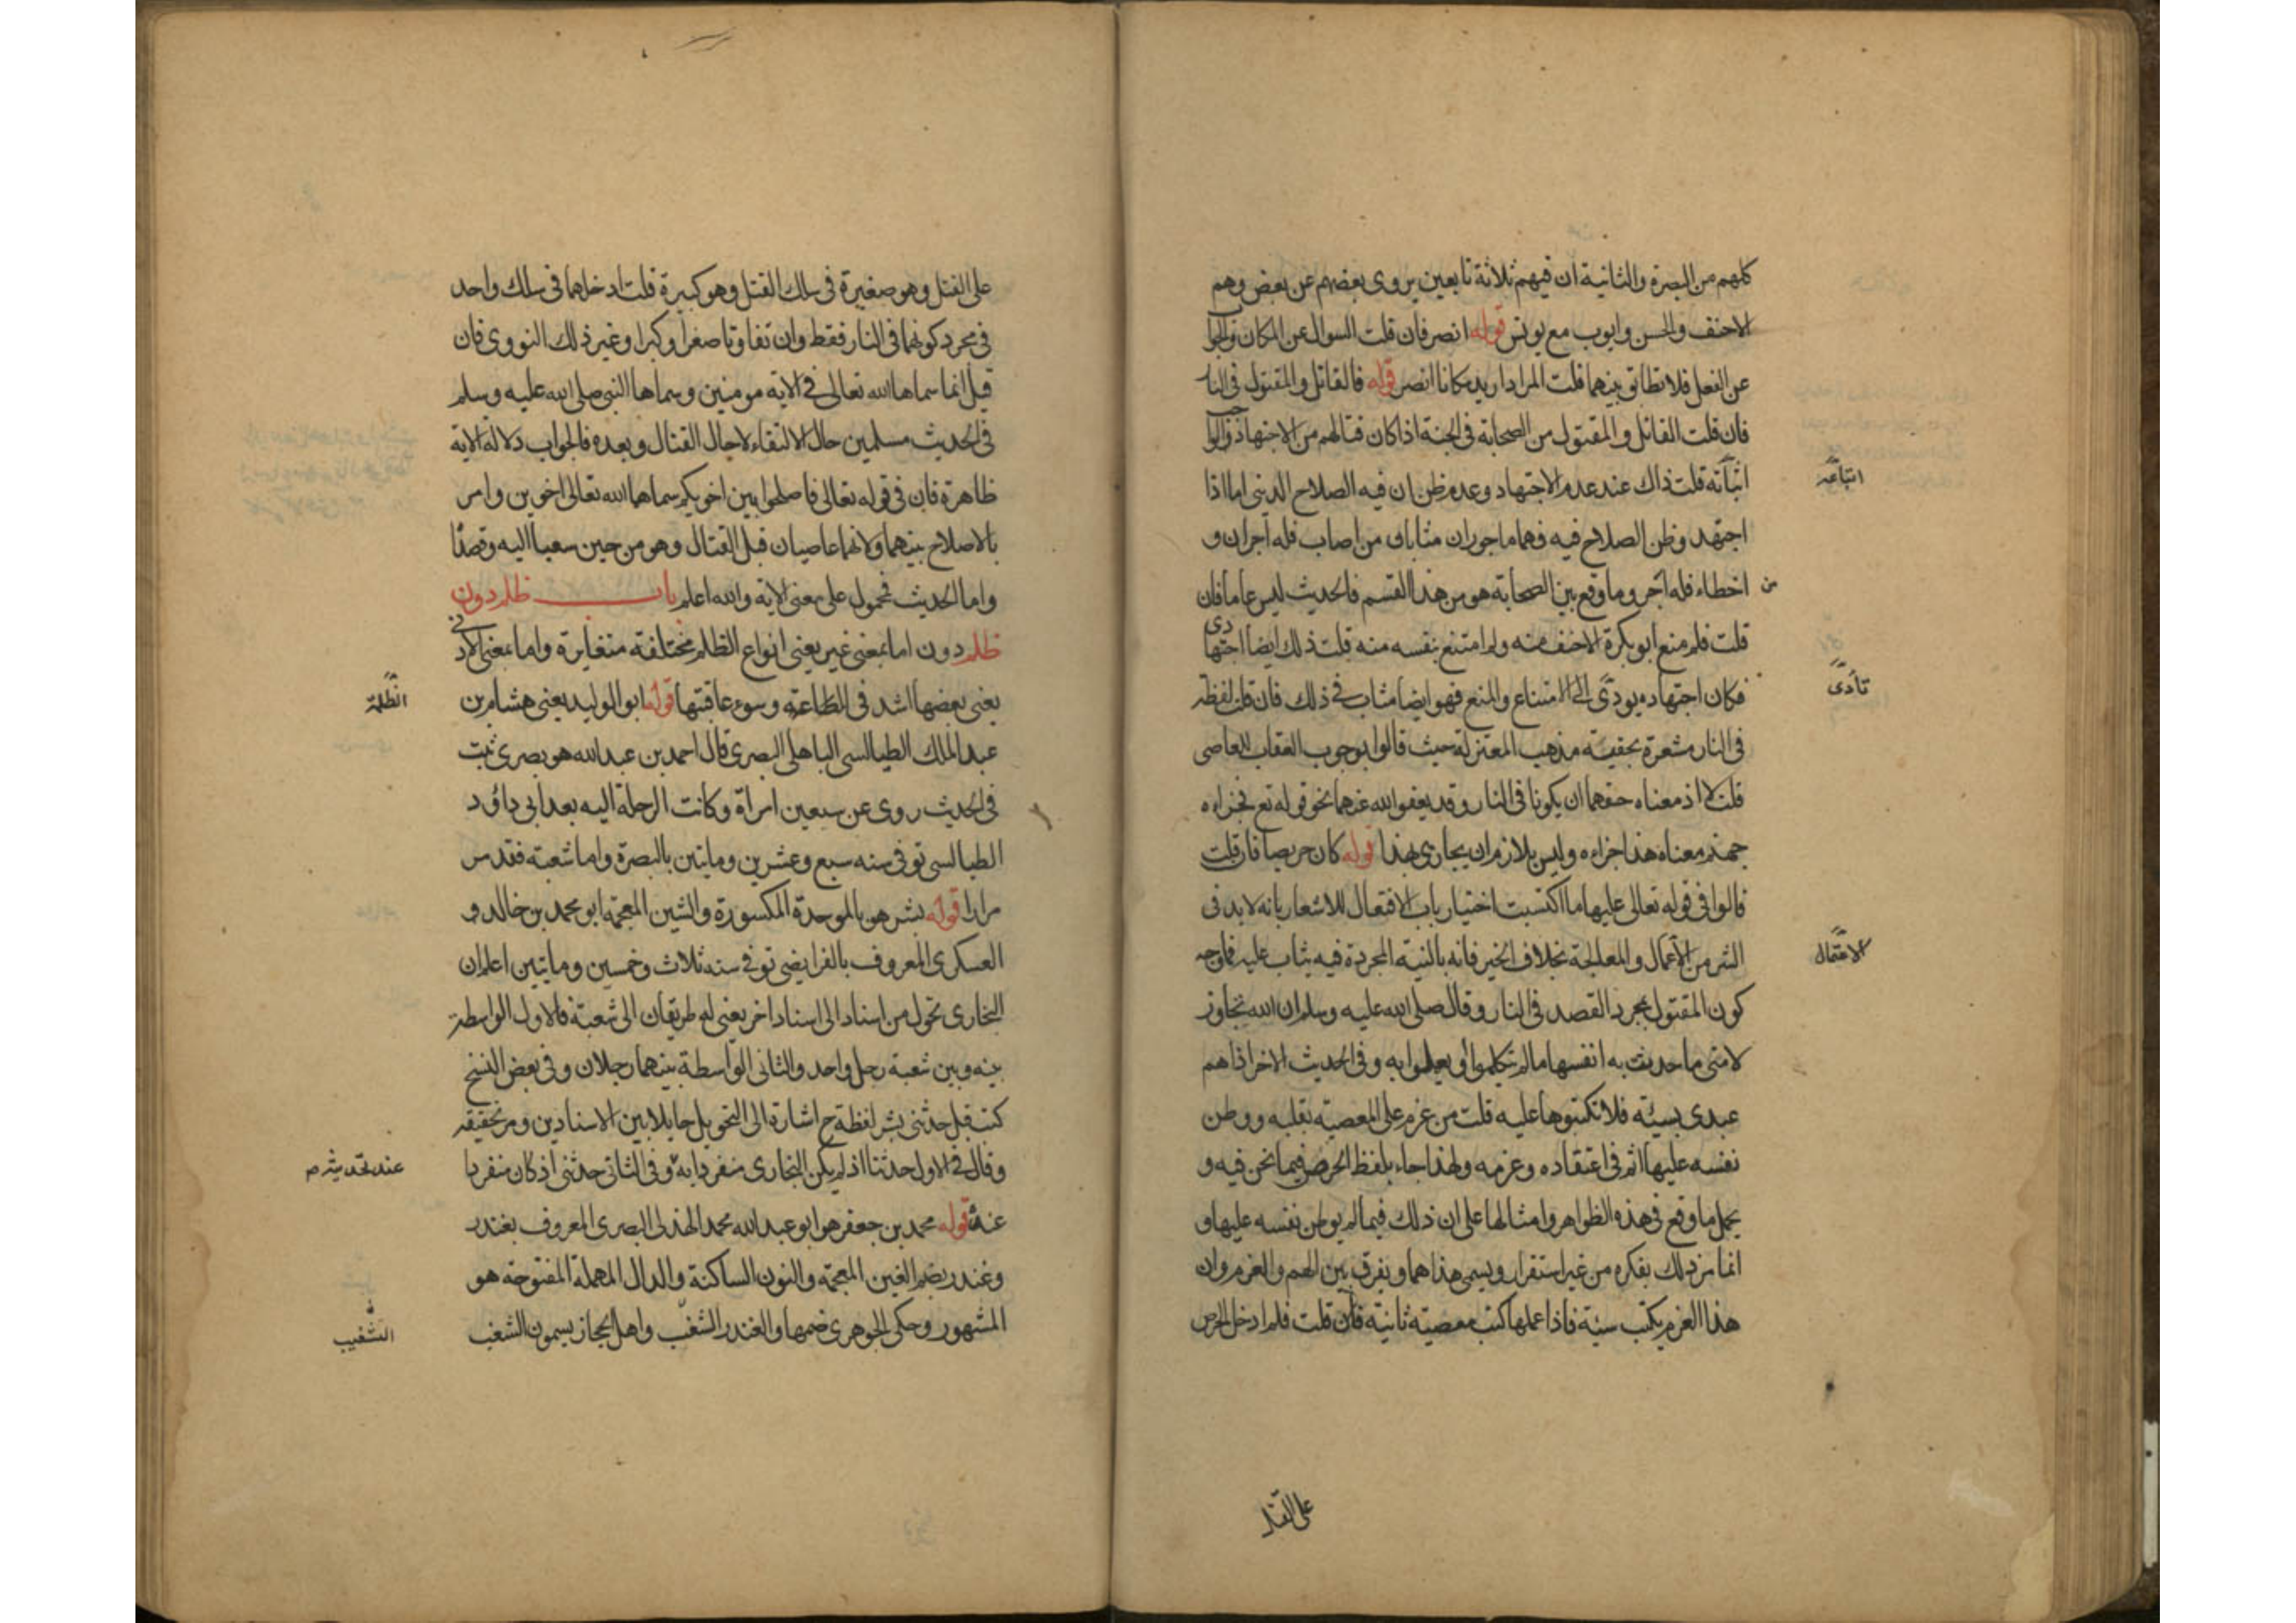 كلهم من البصرة والثانية ان فيهم ثلاثة تابعين يروى بعضهم عن بعض وهم
الاحنف والحسن وايوب مع يونس قوله انصر فان قلت السوال عن المكان والجوا
عن الفعل فلا تطابق بينهما قلت المراد اريد مكانا انصر قوله فالقاتل والمقتول فى النار
فان قلت القاتل والمقتول من الصحابة فى الجنة اذا كان قتالهم من الاجتهاد
قلت ذاك عند عدم الاجتهاد وعدم ظن ان فيه الصلاح الدينى اما اذا
اتباعه
اجتهد وظن الصلاح فيه فهما ماجوران مثابان من اصاب فله اجران و
من
اخطاء فله اجر وما وقع بين الصحابة هو من هذا القسم فالحديث ليس عاما فان
قلت فلم منع ابو بكرة الاحنف منه ولم امتنع بنفسه منه قلت ذلك ايضا اجتهادى
فكان اجتهاده يودى الى الامتناع والمنع فهو ايضا مثاب فى ذلك فان قلت لفظة
تأدى
فى النار مشعرة بحقية مذهب المعتزلة حيث قالوا بوجوب العقاب للعاصى
قلت لا اذ معناه حقهما ان يكونا فى النار وقد يعفو الله عنهما نحو قوله تع فجزاءه
جهنم معناه هذا جزاءه وليس بلازم ان يجازى بهذا قوله كان حريصا فان قلت
قالوا فى قوله تعالى عليها ما اكتسبت اختيار باب الافتعال للاشعار بانه لا بد فى
الشر من الاعمال والمعالجة بخلاف الخير فانه بالنية المجردة فيه يثاب عليه فما وجه
الاعتمال
كون المقتول بمجرد القصد فى النار وقال صلى الله عليه وسلم ان الله تجاوز
لامتى ما حدثت به انفسها ما لم يتكلموا او يعملوا به وفى الحديث الاخر اذا هم
عبدى بسيئة فلا تكتبوها عليه قلت من عزم على المعصية بقلبه ووطن
نفسه عليها اثم فى اعتقاده وعزمه ولهذا جاء بلفظ الحرص فيما نحن فيه و
يحمل ما وقع فى هذه الظواهر وامثالها على ان ذلك فيما لم يوطن نفسه عليها و
انما مر ذلك بفكره من غير استقرار ويسمى هذا هما ويفرق بين الهم والعزم وان
هذا العزم يكتب سيئة فاذا عملها كتب معصية ثانية فان قلت فلم ادخل الحرص
على القتل
على القتل وهو صغيرة فى سلك القتل وهو كبيرة قلت ادخلهما فى سلك واحد
فى مجرد كونهما فى النار فقط وان تفاوتا صغرا وكبرا وغير ذلك النووى فان
قيل انما سماها الله تعالى فى الاية مومنين وسماها النبى صلى الله عليه وسلم
فى الحديث مسلمين حال الالتقاء لا حال القتال وبعده فالجواب دلالة الاية
ظاهرة فان فى قوله تعالى فاصلحوا بين اخويكم سماهما الله تعالى اخوين وامر
بالاصلاح بينهما ولانهما عاصيان قبل القتال وهو من حين سعيا اليه وقصدا
واما الحديث فمحمول على معنى الاية والله اعلم باب ظلم دون
ظلم دون اما بمعنى غير يعنى انواع الظلم مختلفة متغايرة واما بمعنى الادنى
يعنى بعضها اشد فى الظلمة وسوء عاقبتها قوله ابو الوليد يعنى هشام بن
الظلمة
عبد الملك الطيالسى الباهلى البصرى قال احمد بن عبد الله هو بصرى ثبت
فى الحديث روى عن سبعين امراة وكانت الرحلة اليه بعد ابى داؤد
الطيالسى توفى سنه سبع وعشرين وماتين بالبصرة واما شعبة فقد مر
مرارا قوله بشر هو بالموحدة المكسورة والشين المعجمة ابو محمد بن خالد و
العسكرى المعروف بالفرايضى توفى سنه ثلاث وخمسين وماتين اعلم ان
البخارى تحول من اسناد الى اسناد اخر يعنى له طريقان الى شعبة فالاول الواسطة
بينه وبين شعبة رجل واحد والثانى الواسطة بينهما رجلان وفى بعض النسخ
كتب قبل حدثنى بشر لفظة ح اشارة الى التحويل حايلا بين الاسنادين ومر تحقيقه
وقال فى الاول حدثنا اذ لم يكن البخارى منفردا به وفى الثانى حدثنى اذ كان منفردا
عنه قوله محمد بن جعفر هو ابو عبد الله محمد الهذلى البصرى المعروف بغندر
وغندر بضم الغين المعجمة والنون الساكنة والدال المهملة المفتوحة هو
المشهور وحكى الجوهرى ضمها والغندر الشغب واهل الحجاز يسمون الشغب